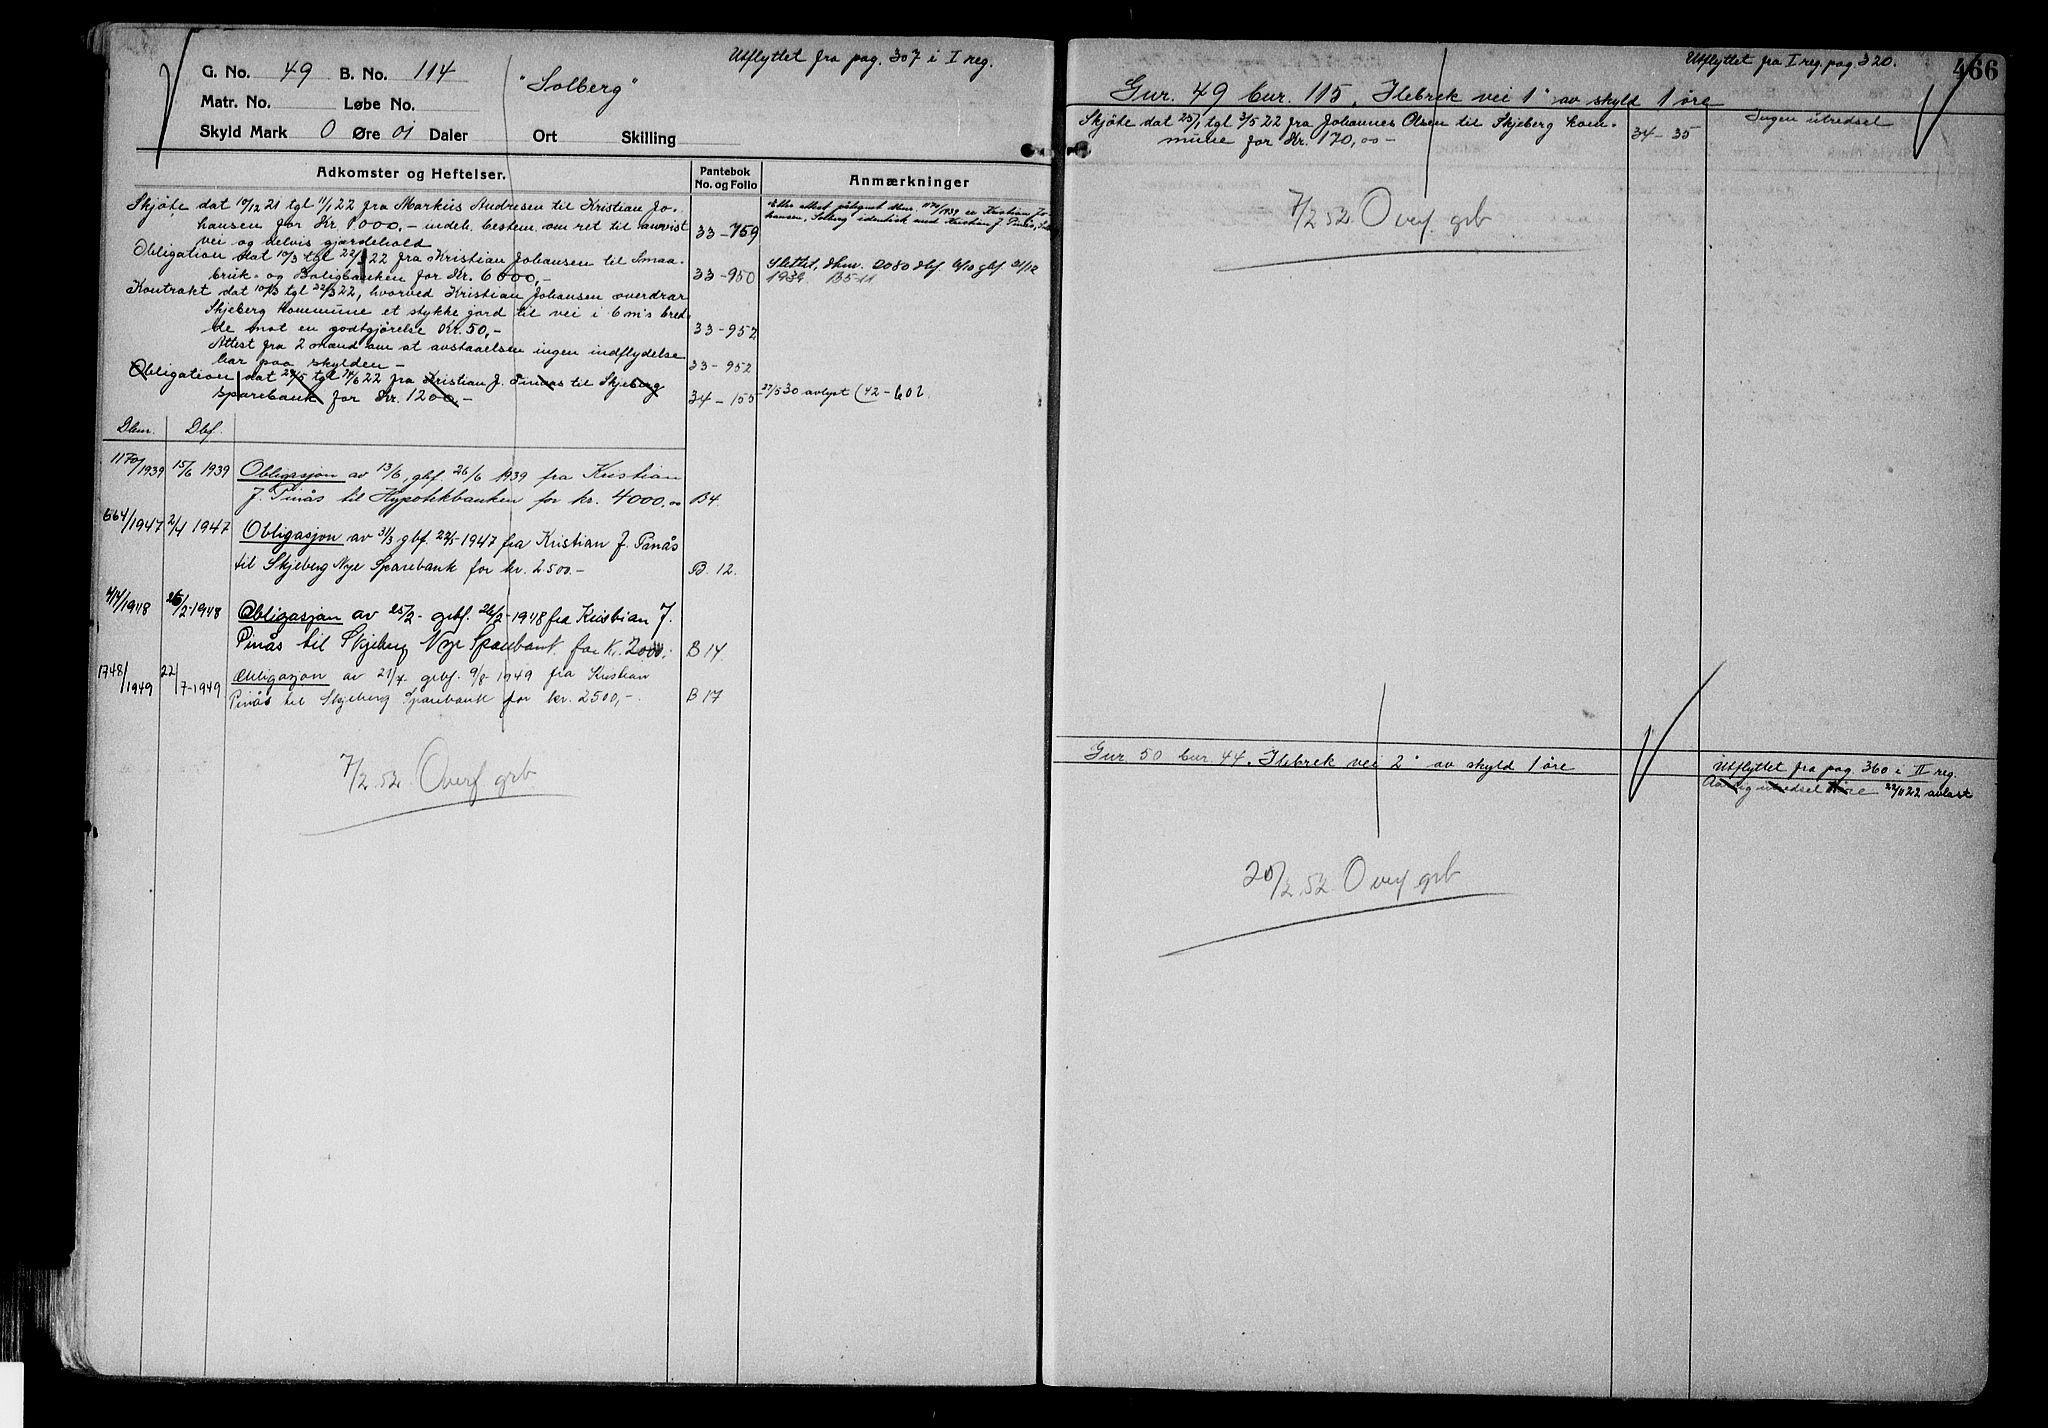 Utflyttet fra pag. 307 i I reg.
G. No. 49 B. No. 114
"Solberg"
Matr. No. Løbe No.
Skyld Mark 0 Øre 01 Daler Ort Skilling
Adkomster og Heftelser.
Pantebok No. og Folio
Anmærkninger
Skjøte dat 10/12 21 tgl 11/1 22 fra Markus Andresen til Kristian Jo-
hansen for Kr. 1000,- indeh. bestem. om ret til anvist
vei og delvis gjærdehold 33-759
Efter attest påtegnet dbnr. 1170/1939 er Kristian Jo-
hansen, Solberg identisk med Kristian J. Pinås,
Obligation dat 10/3 tgl 22/3 22 fra Kristian Johansen til Smaa-
bruk- og Boligbanken for Kr. 6000,- 33-950
Slettet, dbnr. 2080 dbf. 6/10 gbf 31/12
1939. B5-11
Kontrakt dat 10/3 tgl 22/3 22, hvorved Kristian Johansen overdrar
Skjeberg Kommune et stykke jord til vei i 6 m's bred-
de mot en godtgjørelse Kr. 50,- 33-952
Attest fra 2 mænd om at avstaaelsen ingen indflydelse
har paa skylden - 33-952
Obligation dat 29/5 tgl 14/6 22 fra Kristian J. Pinaas til Skjeberg
Sparebank for Kr. 1200,- 34-155
27/5 30 avlyst (42-602
Dbnr. Dbf.
1170/1939 15/6 1939 Obligasjon av 13/6, gbf. 26/6 1939 fra Kristian
J. Pinås til Hypotekbanken for kr. 4000,00 B4.
664/1947 2/4 1947 Obligasjon av 31/3 gbf. 22/5-1947 fra Kristian J. Pinås
til Skjeberg Nye Sparebank for kr. 2500.- B. 12.
414/1948 26/2-1948 Obligasjon av 25/2- grbf. 26/2-1948 fra Kristian J.
Pinås til Skjeberg Nye Sparebank for Kr. 2000,- B 14.
1748/1949 22/7-1949 Obligasjon av 21/7 grbf. 9/8 1949 fra Kristian
Pinås til Skjeberg Sparebank for kr. 2500,-. B 17
7/2.52. Overf grb.
Utflyttet fra I reg. pag. 320.
466
Gnr. 49 bnr. 115. Ilebrek vei 1" av skyld 1 øre
Skjøte dat 25/1 tgl 3/5 22 fra Johannes Olsen til Skjeberg kom-
mune for Kr. 170,00- 34-35 Ingen utredsel
7/2 52. Overf. grb
Gnr. 50 bnr. 44. Ilebrek vei 2" av skyld 1 øre
Utflyttet fra pag. 360 i II reg.
Aarlig utredsel 22/11 22 avløst
20/2.52. Overf grb